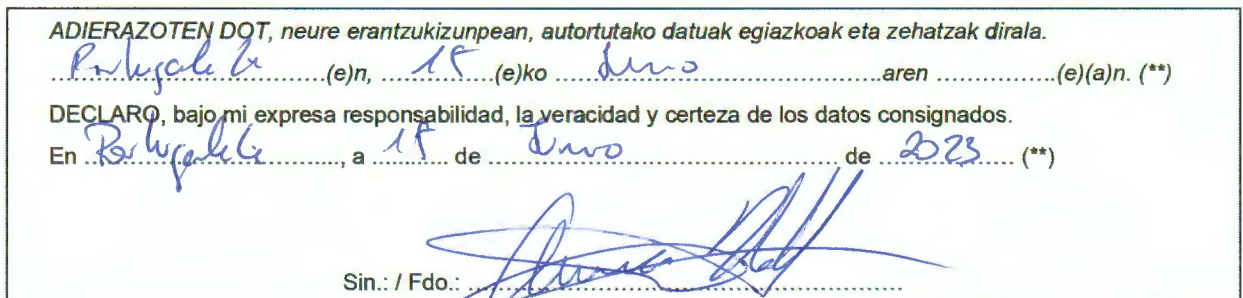 ADIERAZOTEN DOT, neure erantzukizunpean, autortutako datuak egiazkoak eta zehatzak dirala.
Portugalete (e)n, 15 (e)ko Junio aren ................(e)(a)n. (**)
DECLARO, bajo mi expresa responsabilidad, la veracidad y certeza de los datos consignados.
En Portugalete, a 15 de Junio de 2023 (**)
Sin.: / Fdo.: